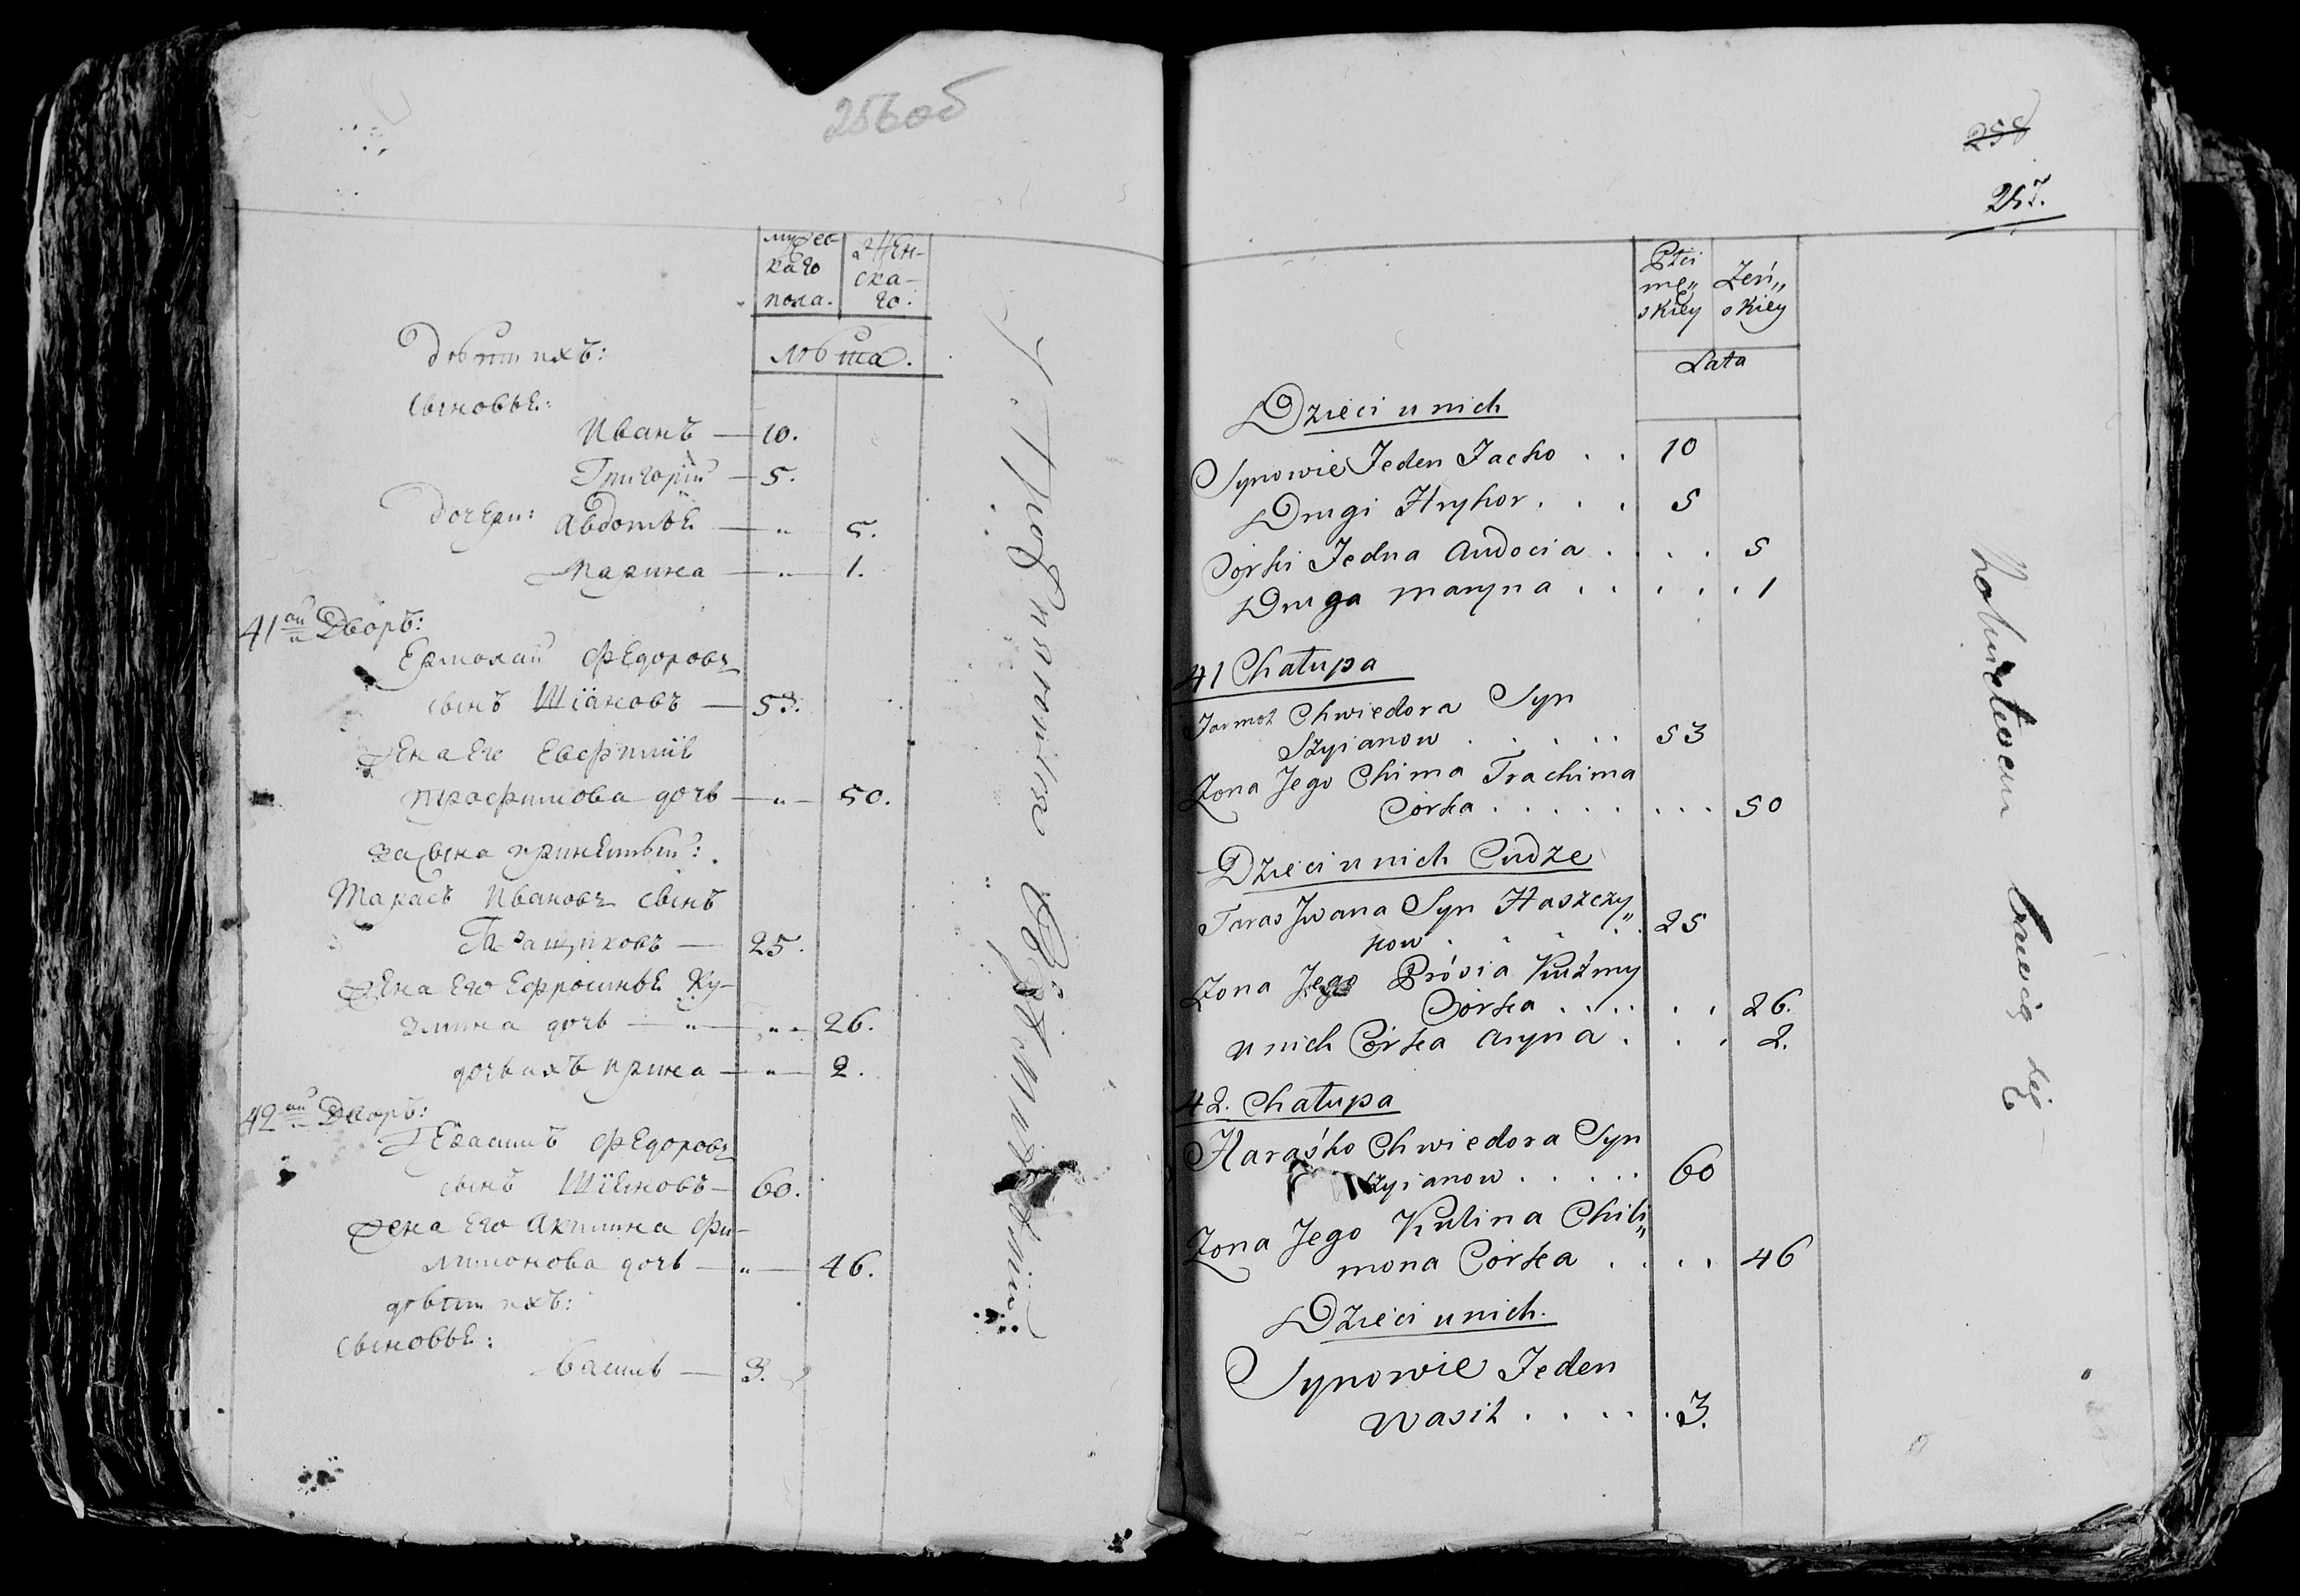 256об
мужес-
каго
пола.
Жен-
ска-
го.
лѣта.
дѣти ихъ:
сыновье:
Иванъ — 10.
Григорій — 5.
дочери: Авдотье — " — 5.
Марина — " — 1.
41ой Дворъ:
Ермолай Федоровъ
сынъ Шіановъ — 53.
жена Его Евфиміѣ
трофимова дочь — " — 50.
за сына принетый:
Тарасъ Ивановъ сынъ
— 25.
жена Его Ефросинье Ку-
змина дочь — " — " — 26.
дочь ихъ Ирина — " — 2.
42ой Дворъ:
Федоровъ
сынъ Шіановъ — 60.
жена Его Акилина Фи-
лимонова дочь — " — 46.
дѣти ихъ:
сыновье:
Василь — 3.
258
257.
Płci
mę„
skiey
Żeń„
skiey
Lata
Dzieci u nich
Synowie Jeden Jacko . . 10
Drugi Hryhor . . . 5
Córki Jedna Audocia . . . . 5
Druga Maryna . . . . . . 1
41 Chałupa
Jarmoł Chwiedora Syn
Szyianow . . . . . 53
Żona Jego Chima Trachima
Córka . . . . . . . . 50
Dzieci u nich Cudze
Taras Jwana Syn Haszczy„
kow . . . . . 25
Żona Jego Prósia Kuźmy
Córka . . . . . . 26.
u nich Córka Aryna . . . . 2.
42. Chałupa
Haraśko Chwiedora Syn
Szyianow . . . . . 60
Żona Jego Kulina Chili„
mona Córka . . . . 46
Dzieci u nich.
Synowie Jeden
Wasil . . . . . 3.